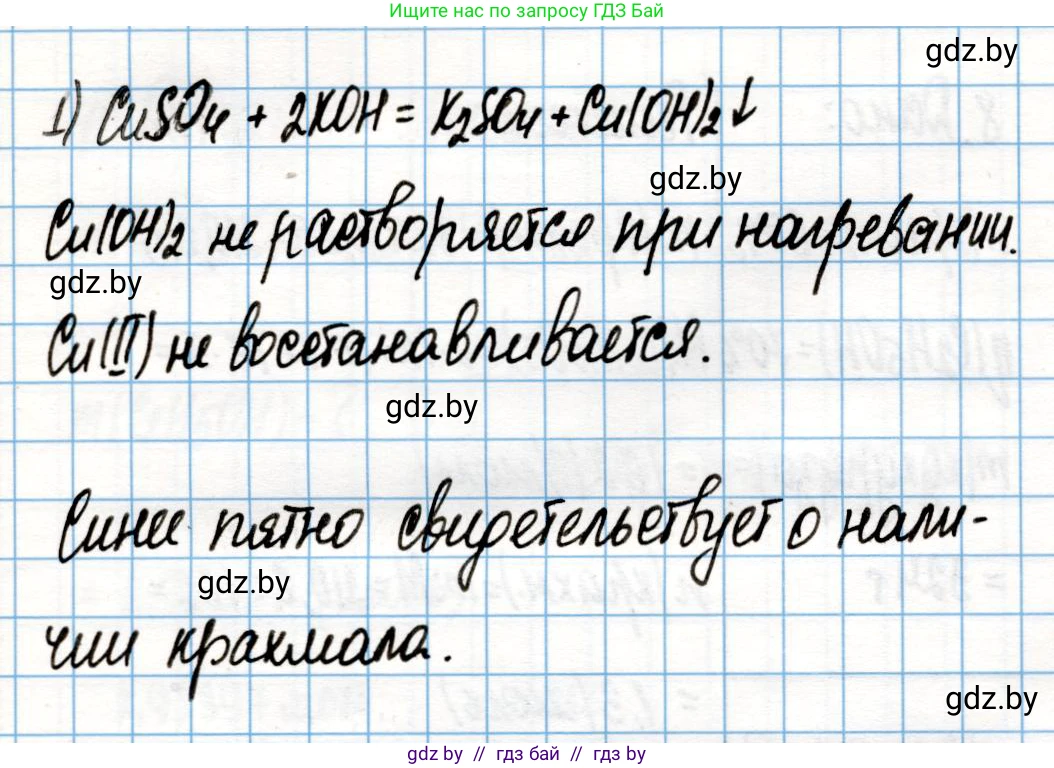 Ищите нас по запросу ГДЗ Бай
gdz.by
1) CuSO₄ + 2KOH = K₂SO₄ + Cu(OH)₂↓
gdz.by
Cu(OH)₂ не растворяется при нагревании.
gdz.by
Cu(II) не восстанавливается.
gdz.by
Синее пятно свидетельствует о нали-
gdz.by
чии крахмала.
gdz.by
gdz.by // гдз бай // гдз by